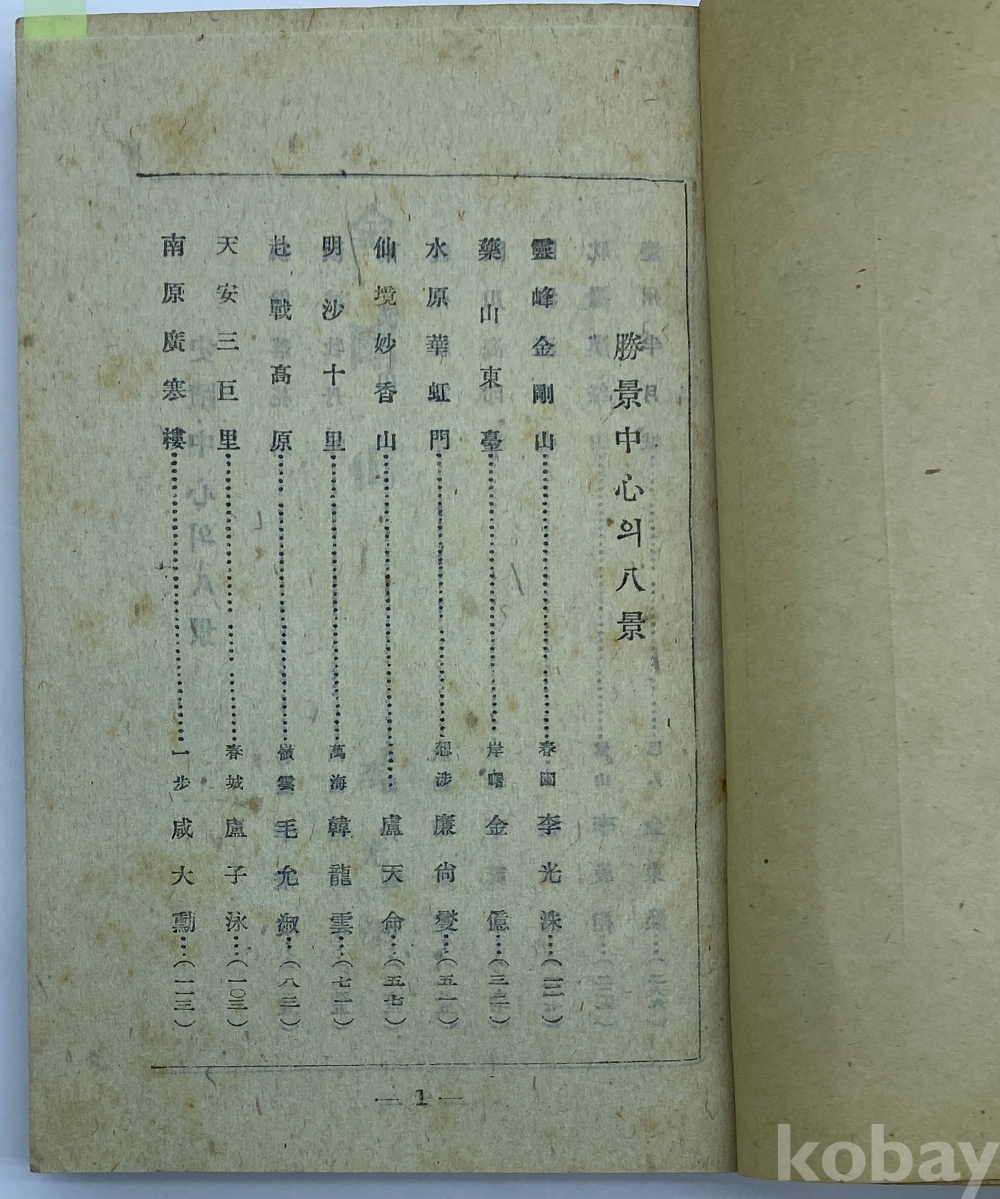 勝景中心의八景
靈峰金剛山 春園 李光洙…(一一)
藥山東臺 岸曙 金億…(三一)
水原華虹門 想涉 廉尙燮…(五一)
仙境妙香山 盧天命…(五七)
明沙十里 萬海 韓龍雲…(七一)
赴戰高原 嶺雲 毛允淑…(八三)
天安三巨里 春城 盧子泳…(一〇三)
南原廣寒樓 一步 咸大勳…(一一三)
— 1 —
kobay